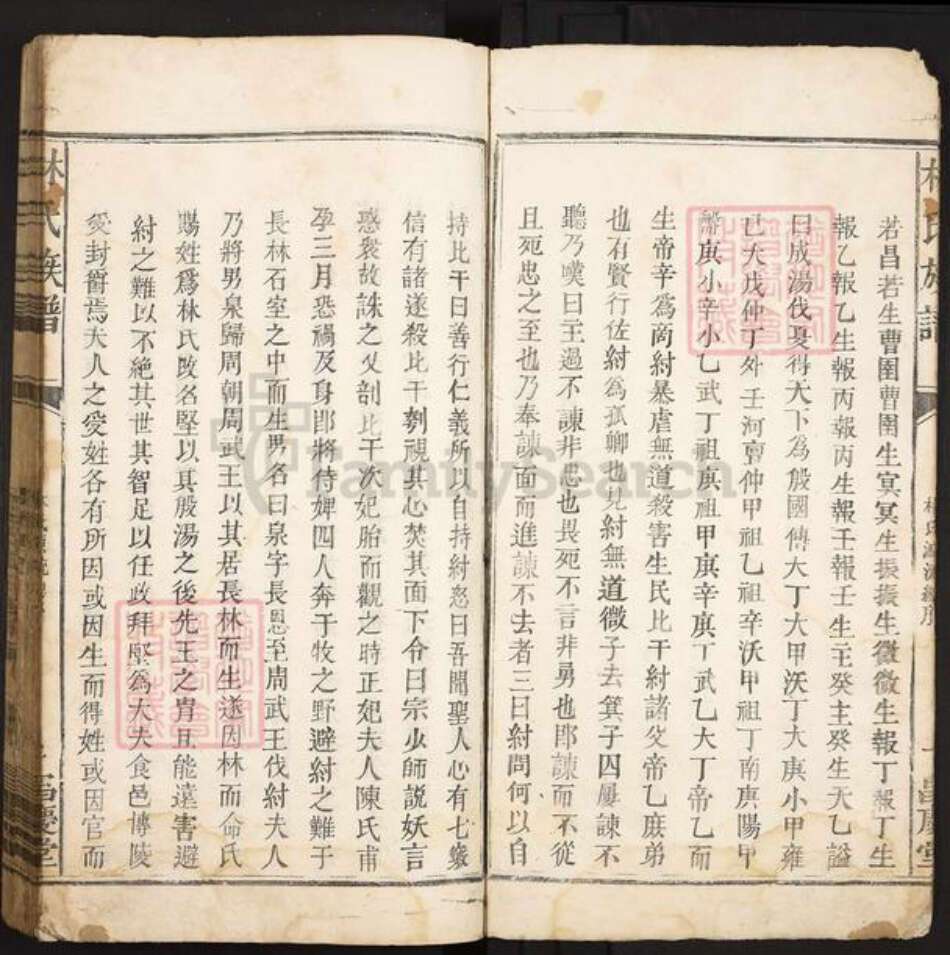 林氏族譜
若昌若生曹圉曹圉生冥冥生振振生微微生報丁報丁生
報乙報乙生報丙報丙生報壬報壬生主癸主癸生天乙謚
曰成湯伐夏得天下為殷國傳大丁大甲沃丁大庚小甲雍
己大戊仲丁外壬河亶仲甲祖乙祖辛沃甲祖丁南庚陽甲
盤庚小辛小乙武丁祖庚祖甲庚辛庚丁武乙大丁帝乙而
生帝辛為商紂暴虐無道殺害生民比干紂諸父帝乙庶弟
也有賢行佐紂為孤卿也見紂無道微子去箕子囚屢諫不
聽乃嘆曰主過不諫非忠也畏死不言非勇也即諫而不從
且死忠之至也乃奉諫面而進諫不去者三日紂問何以自
持比干曰善行仁義所以自持紂怒曰吾聞聖人心有七竅
信有諸遂殺比干刳視其心焚其面下令曰宗少師說妖言
惑衆故誅之又剖比干次妃胎而觀之時正妃夫人陳氏甫
孕三月恐禍及身即將侍婢四人奔于牧之野避紂之難于
長林石室之中而生男名曰泉字長恩至周武王伐紂夫人
乃將男泉歸周朝周武王以其居長林而生遂因林而命氏
賜姓為林氏改名堅以其殷湯之後先王之冑且能遠害避
紂之難以不絕其世其智足以任政拜堅為大夫食邑博陵
受封爵焉夫人之受姓各有所因或因生而得姓或因官而
林氏族譜
慶堂
FamilySearch